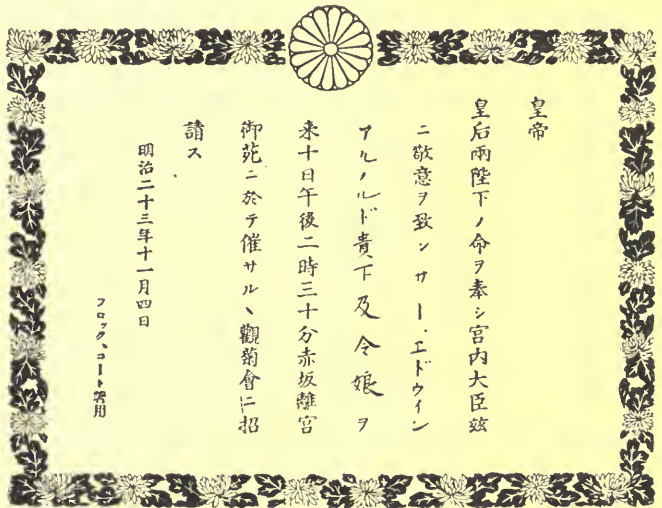 皇帝
皇后兩陛下ノ命ヲ奉シ宮内大臣玆
ニ敬意ヲ致シサー、エドウイン
アルノルド貴下及令娘ヲ
来十日午後二時三十分赤坂離宮
御苑ニ於テ催サルヽ觀菊會ニ招
請ス
明治二十三年十一月四日
フロック、コート著用